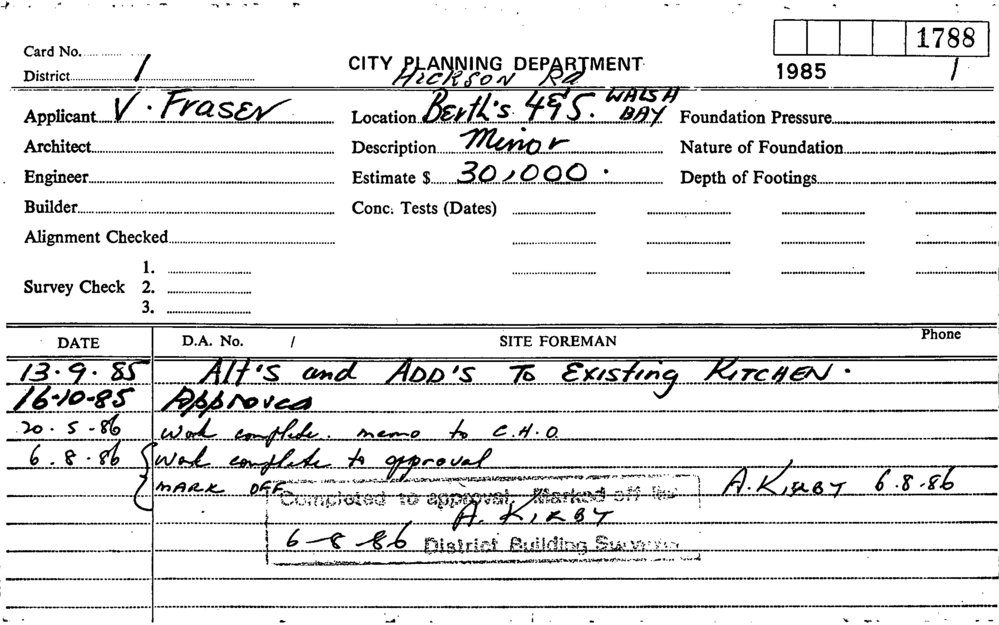 Card No.
1788
District 1
CITY PLANNING DEPARTMENT
1985 /
HICKSON Rd
Applicant V. Fraser
Location Berth's 4&5. WALSH BAY
Foundation Pressure
Architect
Description Minor
Nature of Foundation
Engineer
Estimate $ 30,000.
Depth of Footings
Builder
Conc. Tests (Dates)
Alignment Checked
1.
Survey Check 2.
3.
DATE D.A. No. / SITE FOREMAN Phone
13.9.85 Alt's and ADD'S To Existing KITCHEN.
16-10-85 Approved
20.5.86 Work complete. memo to C.H.O.
6.8.86 Work complete to approval
MARK OFF A. KIRBY 6.8.86
Completed to approval. Marked off
A. KIRBY
6-8-86 District Building Surveyor